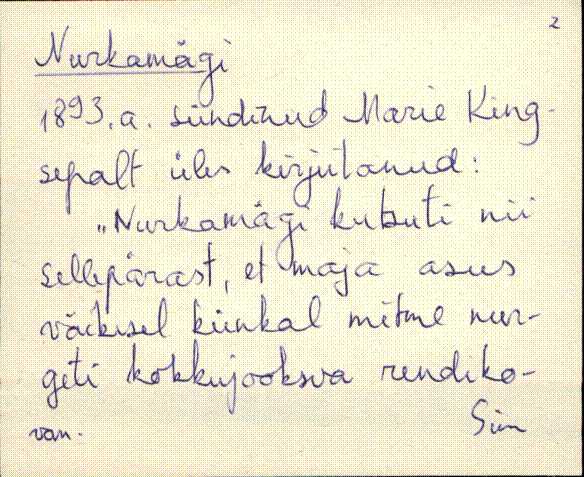 2
Nurkamägi
1893. a. sündinud Marie King-
sepalt üles kirjutanud:
„Nurkamägi kutsuti nii
sellepärast, et maja asus
väikesel künkal mitme nur-
geti kokkujooksva rendiko-
van.